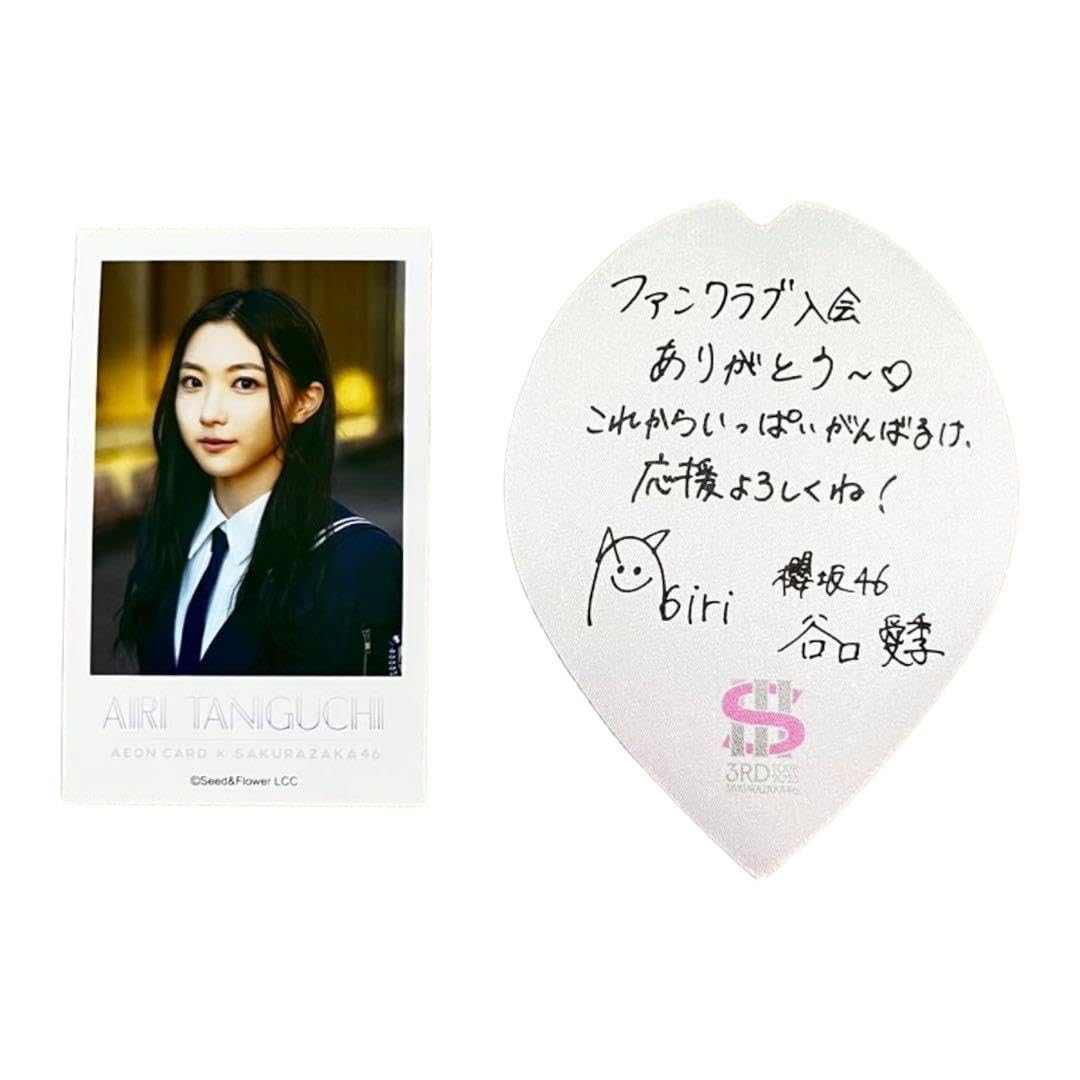 AIRI TANIGUCHI
AEON CARD × SAKURAZAKA46
©Seed&Flower LCC
ファンクラブ入会
ありがとう〜♡
これからいっぱいがんばるけ、
応援よろしくね!
Airi
櫻坂46
谷口愛季
3RD TOUR 2023
SAKURAZAKA46